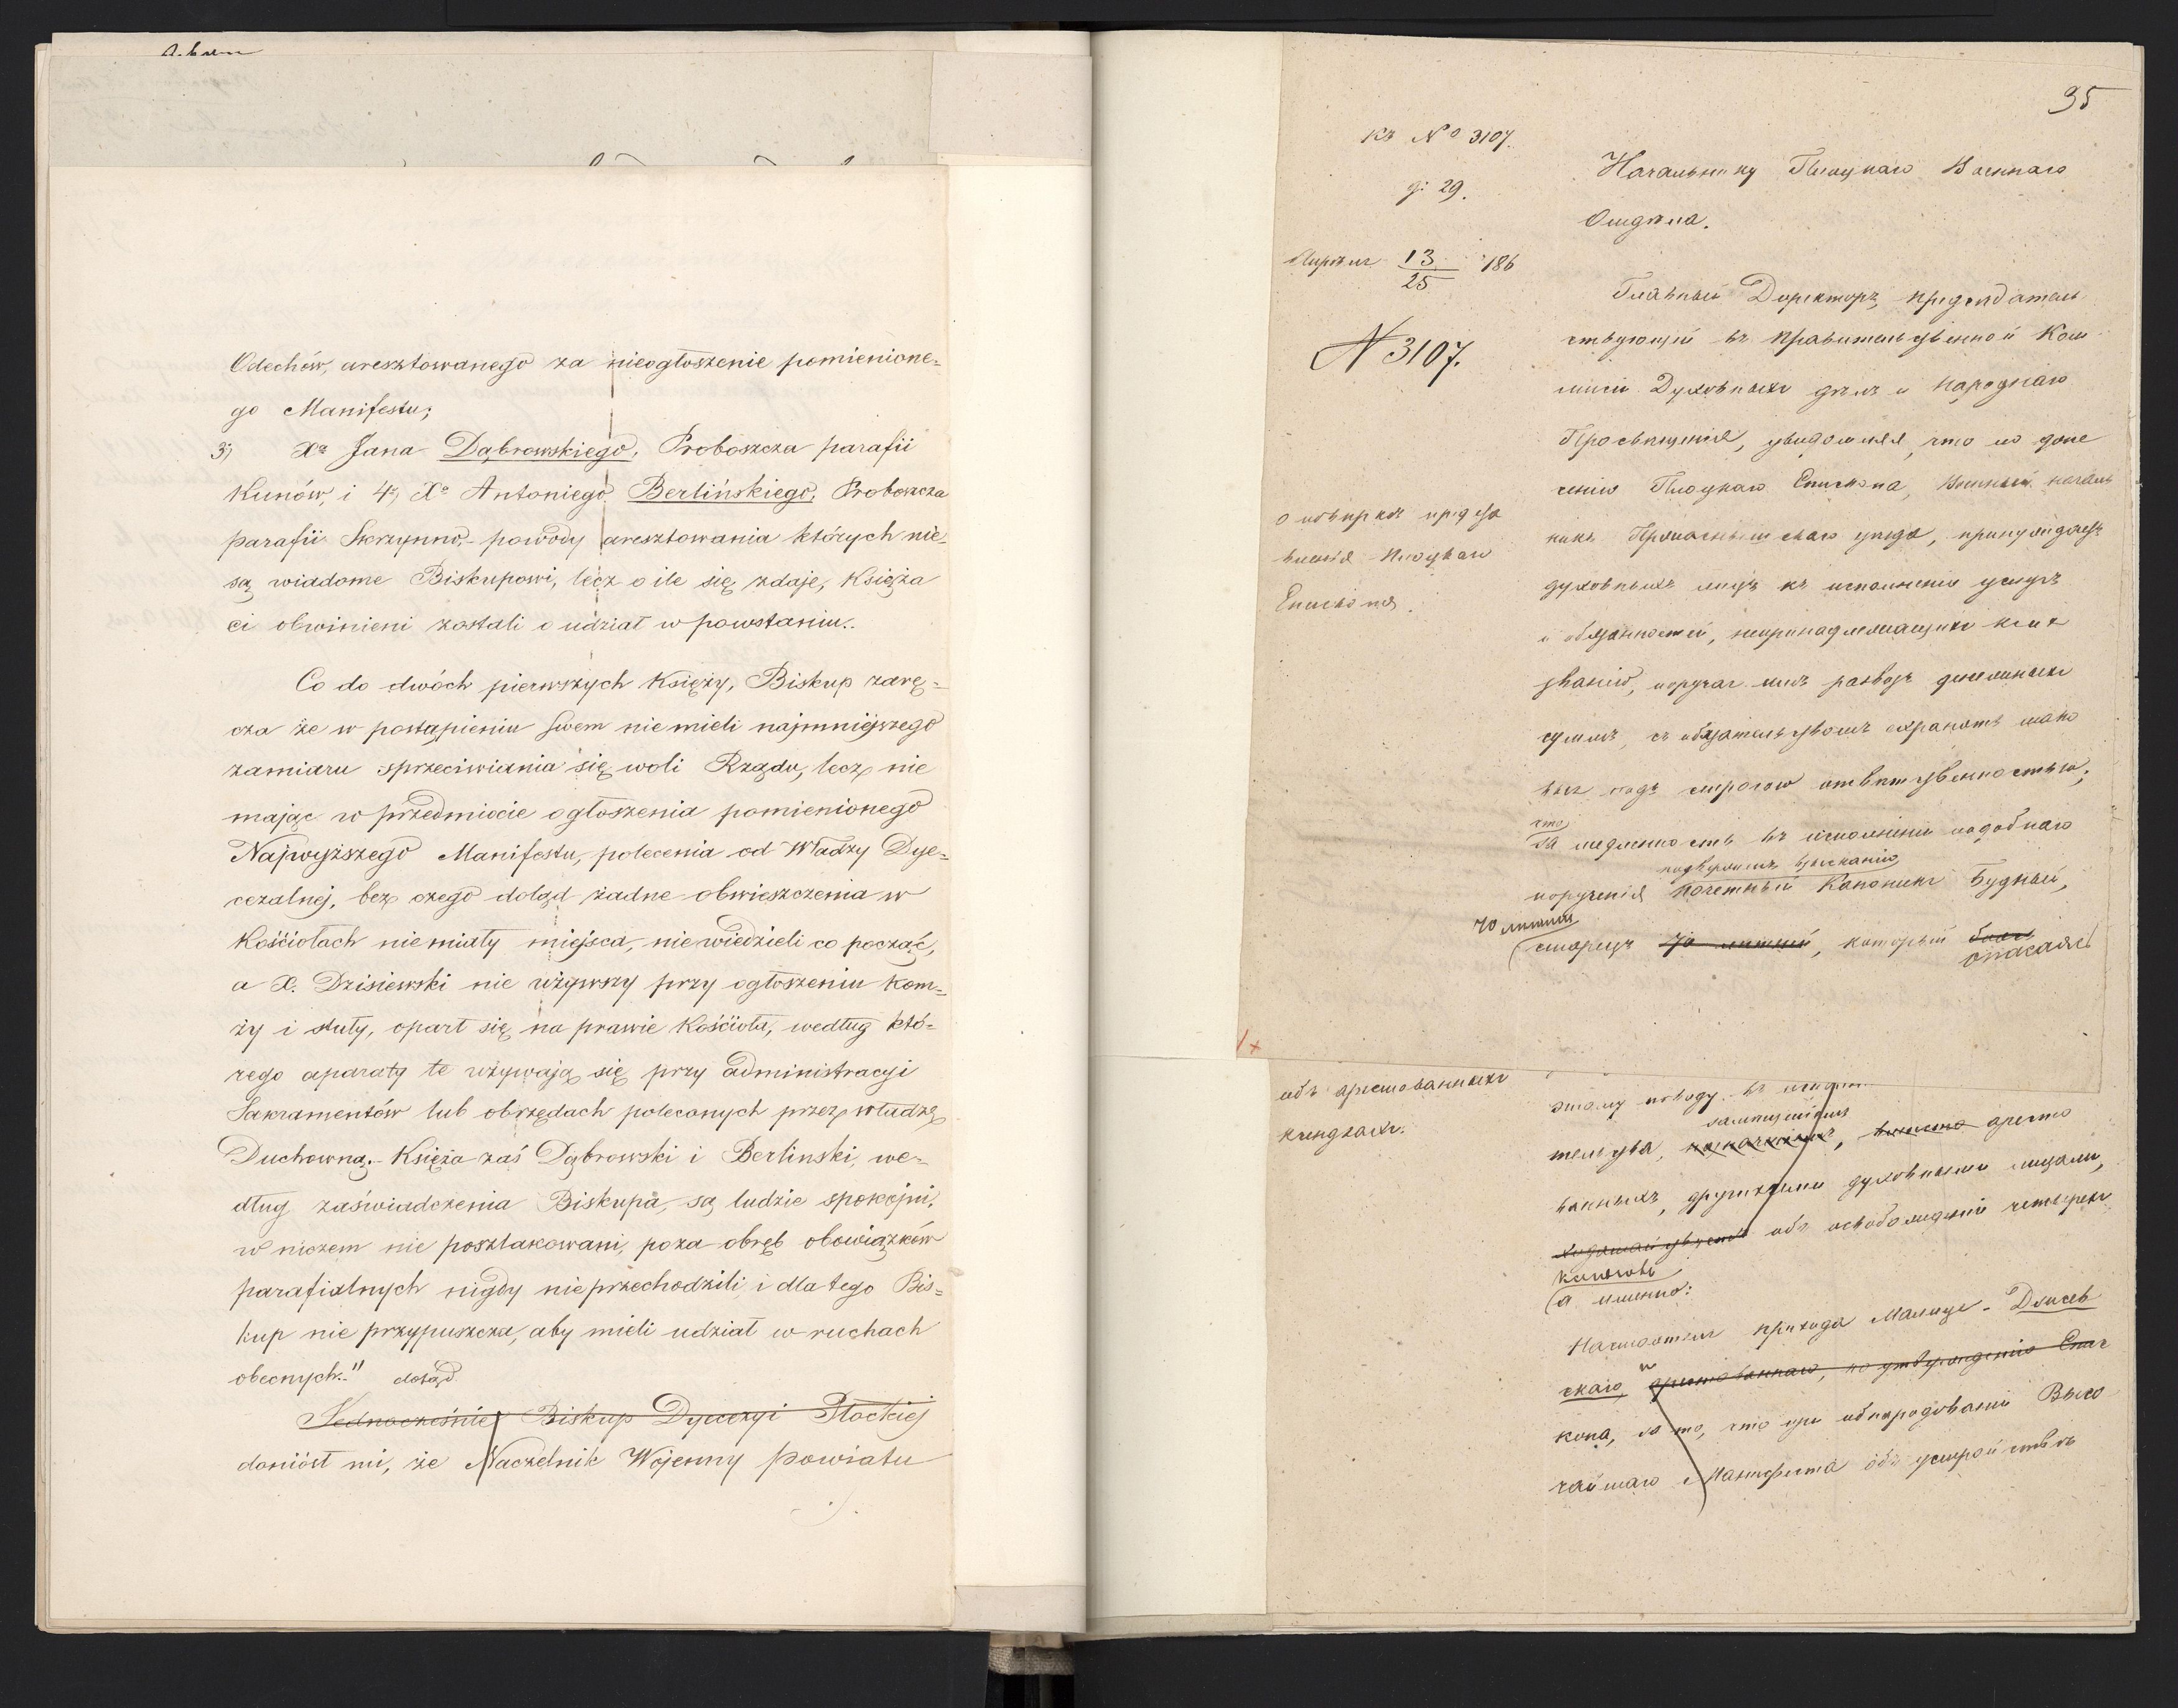 Odechów, aresztowanego za nieogłoszenie pomienione=
go Manifestu;
3) Xa Jana Dąbrowskiego, Proboszcza parafii
Kunów, i 4o, Xa Antoniego Berlińskiego, Proboszcza
parafii Skrzynno,- powody aresztowania których nie=
są wiadome Biskupowi, lecz o ile się zdaje, Księża
ci obwinieni zostali o udział w powstaniu..
Co do dwóch pierwszych Księży, Biskup zarę=
cza że w postąpieniu swem nie mieli najmniejszego
zamiaru sprzeciwiania się woli Rządu, lecz nie
mając w przedmiocie ogłoszenia pomienionego
Najwyższego Manifestu, polecenia od Władzy Dye=
cezalnej, bez czego dotąd żadne obwieszczenia w
Kościołach nie miały miejsca, nie wiedzieli co począć,
a X. Dzisiewski nie używszy przy ogłoszeniu kom=
ży i stuły, oparł się na prawie Kościoła, według któ=
rego aparaty te używają się przy administracyi
Sakramentów lub obrzędach poleconych przez władzę
Duchowną.- Księża zaś Dąbrowski i Berlinski, we=
dług zaświadczenia Biskupa, są ludzie spokojni,
w niczem nie poszlakowani, poza obręb obowiązków
parafialnych nigdy nie przechodzili i dla tego Bis=
kup nie przypuszcza, aby mieli udział w ruchach
obecnych." dotąd
Jednocześnie Biskup Dyecezyi Płockiej
doniósł mi, że Naczelnik Wojenny powiatu
95
Къ No 3107.
д: 29.
Начальнику Плоцкаго Военнаго
Отдѣла.
Апрѣля 13/25 186
N 3107.
Главный Директоръ, предсѣдатель
ствующій въ Правительственной Ком
мисіи Духовныхъ дѣлъ и Народнаго
Просвѣщенія, увѣдомляя, что по доне
сенію Плоцкаго Епископа, Военный началь
никъ Прасныш скаго уѣзда, принуждаетъ
духовныхъ лицъ къ исполненію услугъ
и обязанностей, непринадлежащихъ къ ихъ
званію, поручая имъ развозъ денежныхъ
суммъ, съ обязательствомъ охранять тако
выя подъ строгою отвѣтственностью;
что
за медленность въ исполненіи подобнаго
подвергнутъ взысканію
порученія почетный Каноникъ Будный,
70 лѣтній
старецъ 70 лѣтній, который
опасаясь
о повѣркѣ предста
вленія Плоцкаго
Епископа.
объ арестованныхъ
ксендзахъ.
этому поводу въ
замѣщеніемъ
тельства, вмѣсто аресто
ванныхъ, другими духовными лицами,
ходатайствуетъ объ освобожденіи четырехъ
а именно:
Настоятеля прихода Малице - Дзисев
скаго, арестованнаго, по утвержденію Епис
копа, за то, что при обнародованіи Высо
чайшаго Манифеста объ устройствѣ